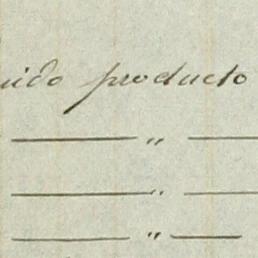 uido producto
— " —
— " —
— " —